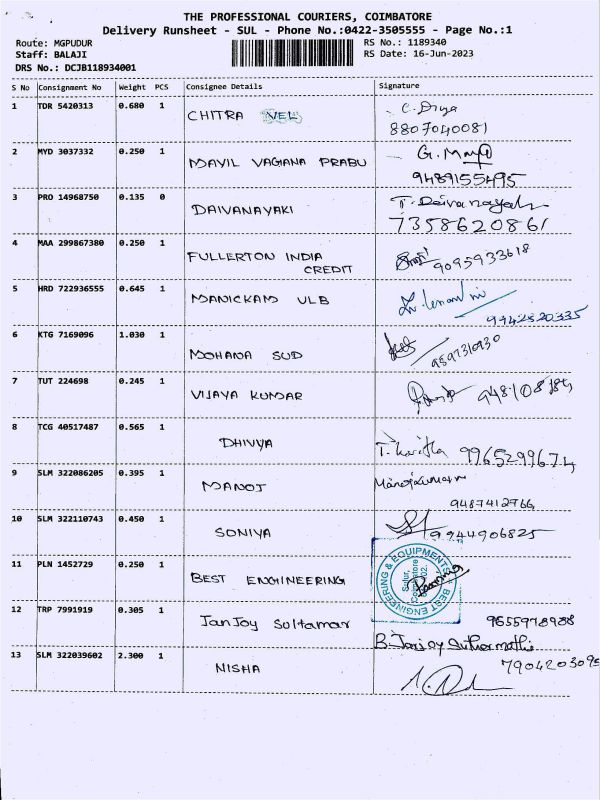 THE PROFESSIONAL COURIERS, COIMBATORE
Delivery Runsheet - SUL - Phone No.:0422-3505555 - Page No.:1
Route: MGPUDUR
RS No.: 1189340
Staff: BALAJI
RS Date: 16-Jun-2023
DRS No.: DCJB118934001
S No Consignment No Weight PCS Consignee Details Signature
1 TDR 5420313 0.680 1 CHITRA VEL C. Divya
8807040081
2 MYD 3037332 0.250 1 MAYIL VAGANA PRABU G.
9489155495
3 PRO 14968750 0.135 0 DAIVANAYAKI T. Daivanayaki
7358620861
4 MAA 299867380 0.250 1 FULLERTON INDIA
CREDIT 9095933618
5 HRD 722936555 0.645 1 MANICKAM ULB
9942520335
6 KTG 7169096 1.030 1 MOHANA SUD
7 TUT 224698 0.245 1 VIJAYA KUMAR
8 TCG 40517487 0.565 1 DHIVYA 9965299674
9 SLM 322086205 0.395 1 MANOJ Manojkumar
9487412766
10 SLM 322110743 0.450 1 SONIYA 9944906825
11 PLN 1452729 0.250 1 BEST ENGINEERING
BEST ENGINEERING & EQUIPMENTS
Sulur, Coimbatore
12 TRP 7991919 0.305 1 JanJoy Sultamar 9655978988
13 SLM 322039602 2.300 1 NISHA 7904203095